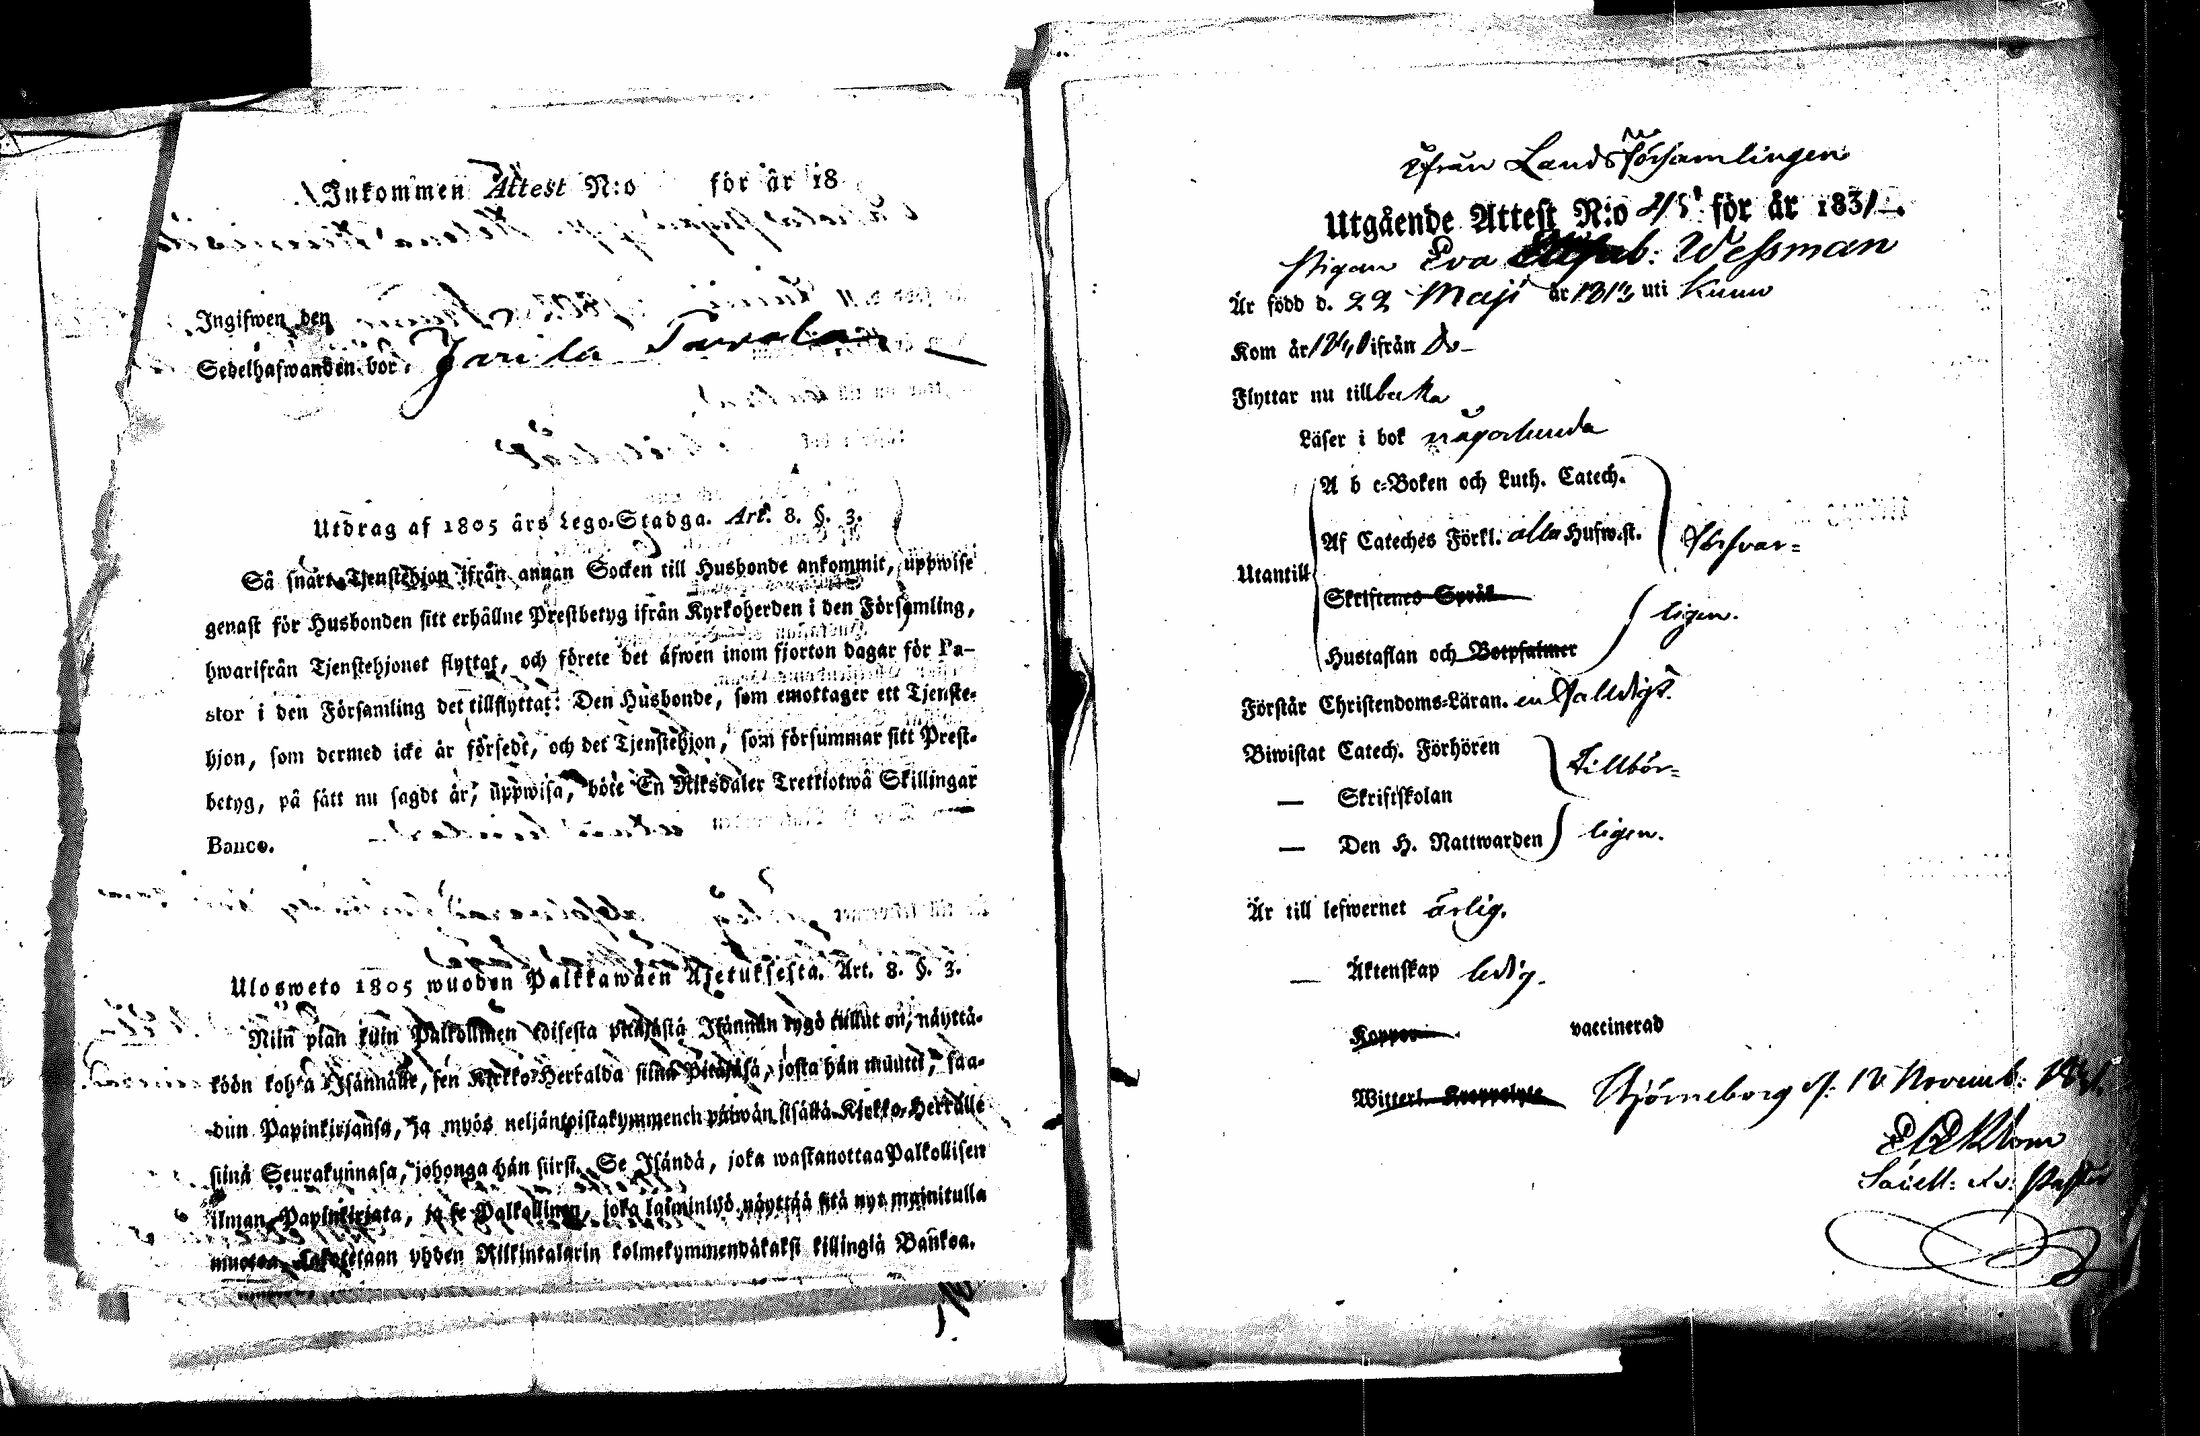 Inkommen Attest N:o för år 18
Ingifwen den
Sedelhafwanden bor.
Utdrag af 1805 års Lego-Stadga. Art. 8. §. 3.
Så snart Tjenstehjon ifrån annan Socken till Husbonde ankommit, uppwise
genast för Husbonden sitt erhållne Prestbetyg ifrån Kyrkoherden i den Församling,
hwarifrån Tjenstehjonet flyttat, och förete det äfwen inom fjorton dagar för Pa-
stor i den Församling det tillflyttat: Den Husbonde, som emottager ett Tjenste-
hjon, som dermed icke är försedt, och det Tjenstehjon, som försummar sitt Prest-
betyg, på sätt nu sagdt är, uppwisa, böte En Riksdaler Trettiotwå Skillingar
Banco.
Ulosweto 1805 wuoden Palkkawäen Asetuksesta. Art. 8. §. 3.
Niin pian kuin Palkollinen toisesta pitäjästä Isännän tygö tullut on, näyttä-
köön kohta Isännälle, sen Kirkko-Herralda siinä Pitäjäsä, josta hän muutti, saa-
dun Papinkirjansa, ja myös neljäntoistakymmenen päiwän sisällä Kirkko-Herralle
siinä Seurakunnasa, johonga hän siirsi. Se Isändä, joka wastanottaa Palkollisen
ilman Papinkirjata, ja se Palkollinen, joka laiminlyö näyttää sitä nyt mainitulla
muotoa, sakotetaan yhden Riikintalarin kolmekymmendäkaksi killingiä Bankoa.
ifrån Landsförsamlingen
Utgående Attest N:o för år 1831.
Pigan Eva Wessman
Är född d. 22 Maji år uti Kumo
Kom år ifrån Do
Flyttar nu tillbaka
Läser i bok någorlunda
A b c-Boken och Luth. Catech.
Af Cateches Förkl. alla Hufwst. Försvar-
Utantill
Skriftenes Språk
ligen.
Hustaflan och Botpsalmer
Förstår Christendoms-Läran. enfaldigt.
Biwistat Catech. Förhören tillbör-
— Skriftskolan
— Den H. Nattwarden ligen.
Är till lefwernet ärlig.
— Äktenskap ledig.
Koppor vaccinerad
Witterl. Björneborg d. Novemb: